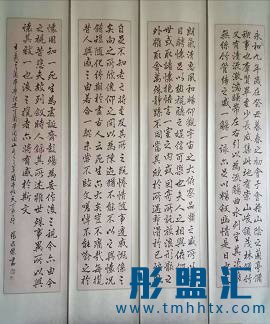 永和九年歲在癸丑暮春之初會于會稽山陰之蘭亭脩
禊事也羣賢畢至少長咸集此地有崇山峻領茂林脩竹
又有清流激湍映帶左右引以為流觴曲水列坐其次雖
無絲竹管弦之盛一觴一詠亦足以暢敘幽情是日也
天朗氣清惠風和暢仰觀宇宙之大俯察品類之盛所以遊
目騁懷足以極視聽之娛信可樂也夫人之相與俯仰一
世或取諸懷抱悟言一室之內或因寄所託放浪形骸之
外雖趣舍萬殊靜躁不同當其欣於所遇暫得於己快然
自足不知老之將至及其所之既惓情隨事遷感慨係之
矣向之所欣俛仰之間以為陳迹猶不能不以之興懷
況脩短隨化終期於盡古人云死生亦大矣豈不痛哉每攬
昔人興感之由若合一契未嘗不臨文嗟悼不能喻之於
懷固知一死生為虛誕齊彭殤為妄作後之視今亦由今
之視昔悲夫故列敘時人錄其所述雖世殊事異所以興
懷其致一也後之攬者亦將有感於斯文
彤盟汇
www.tmhhtx.com